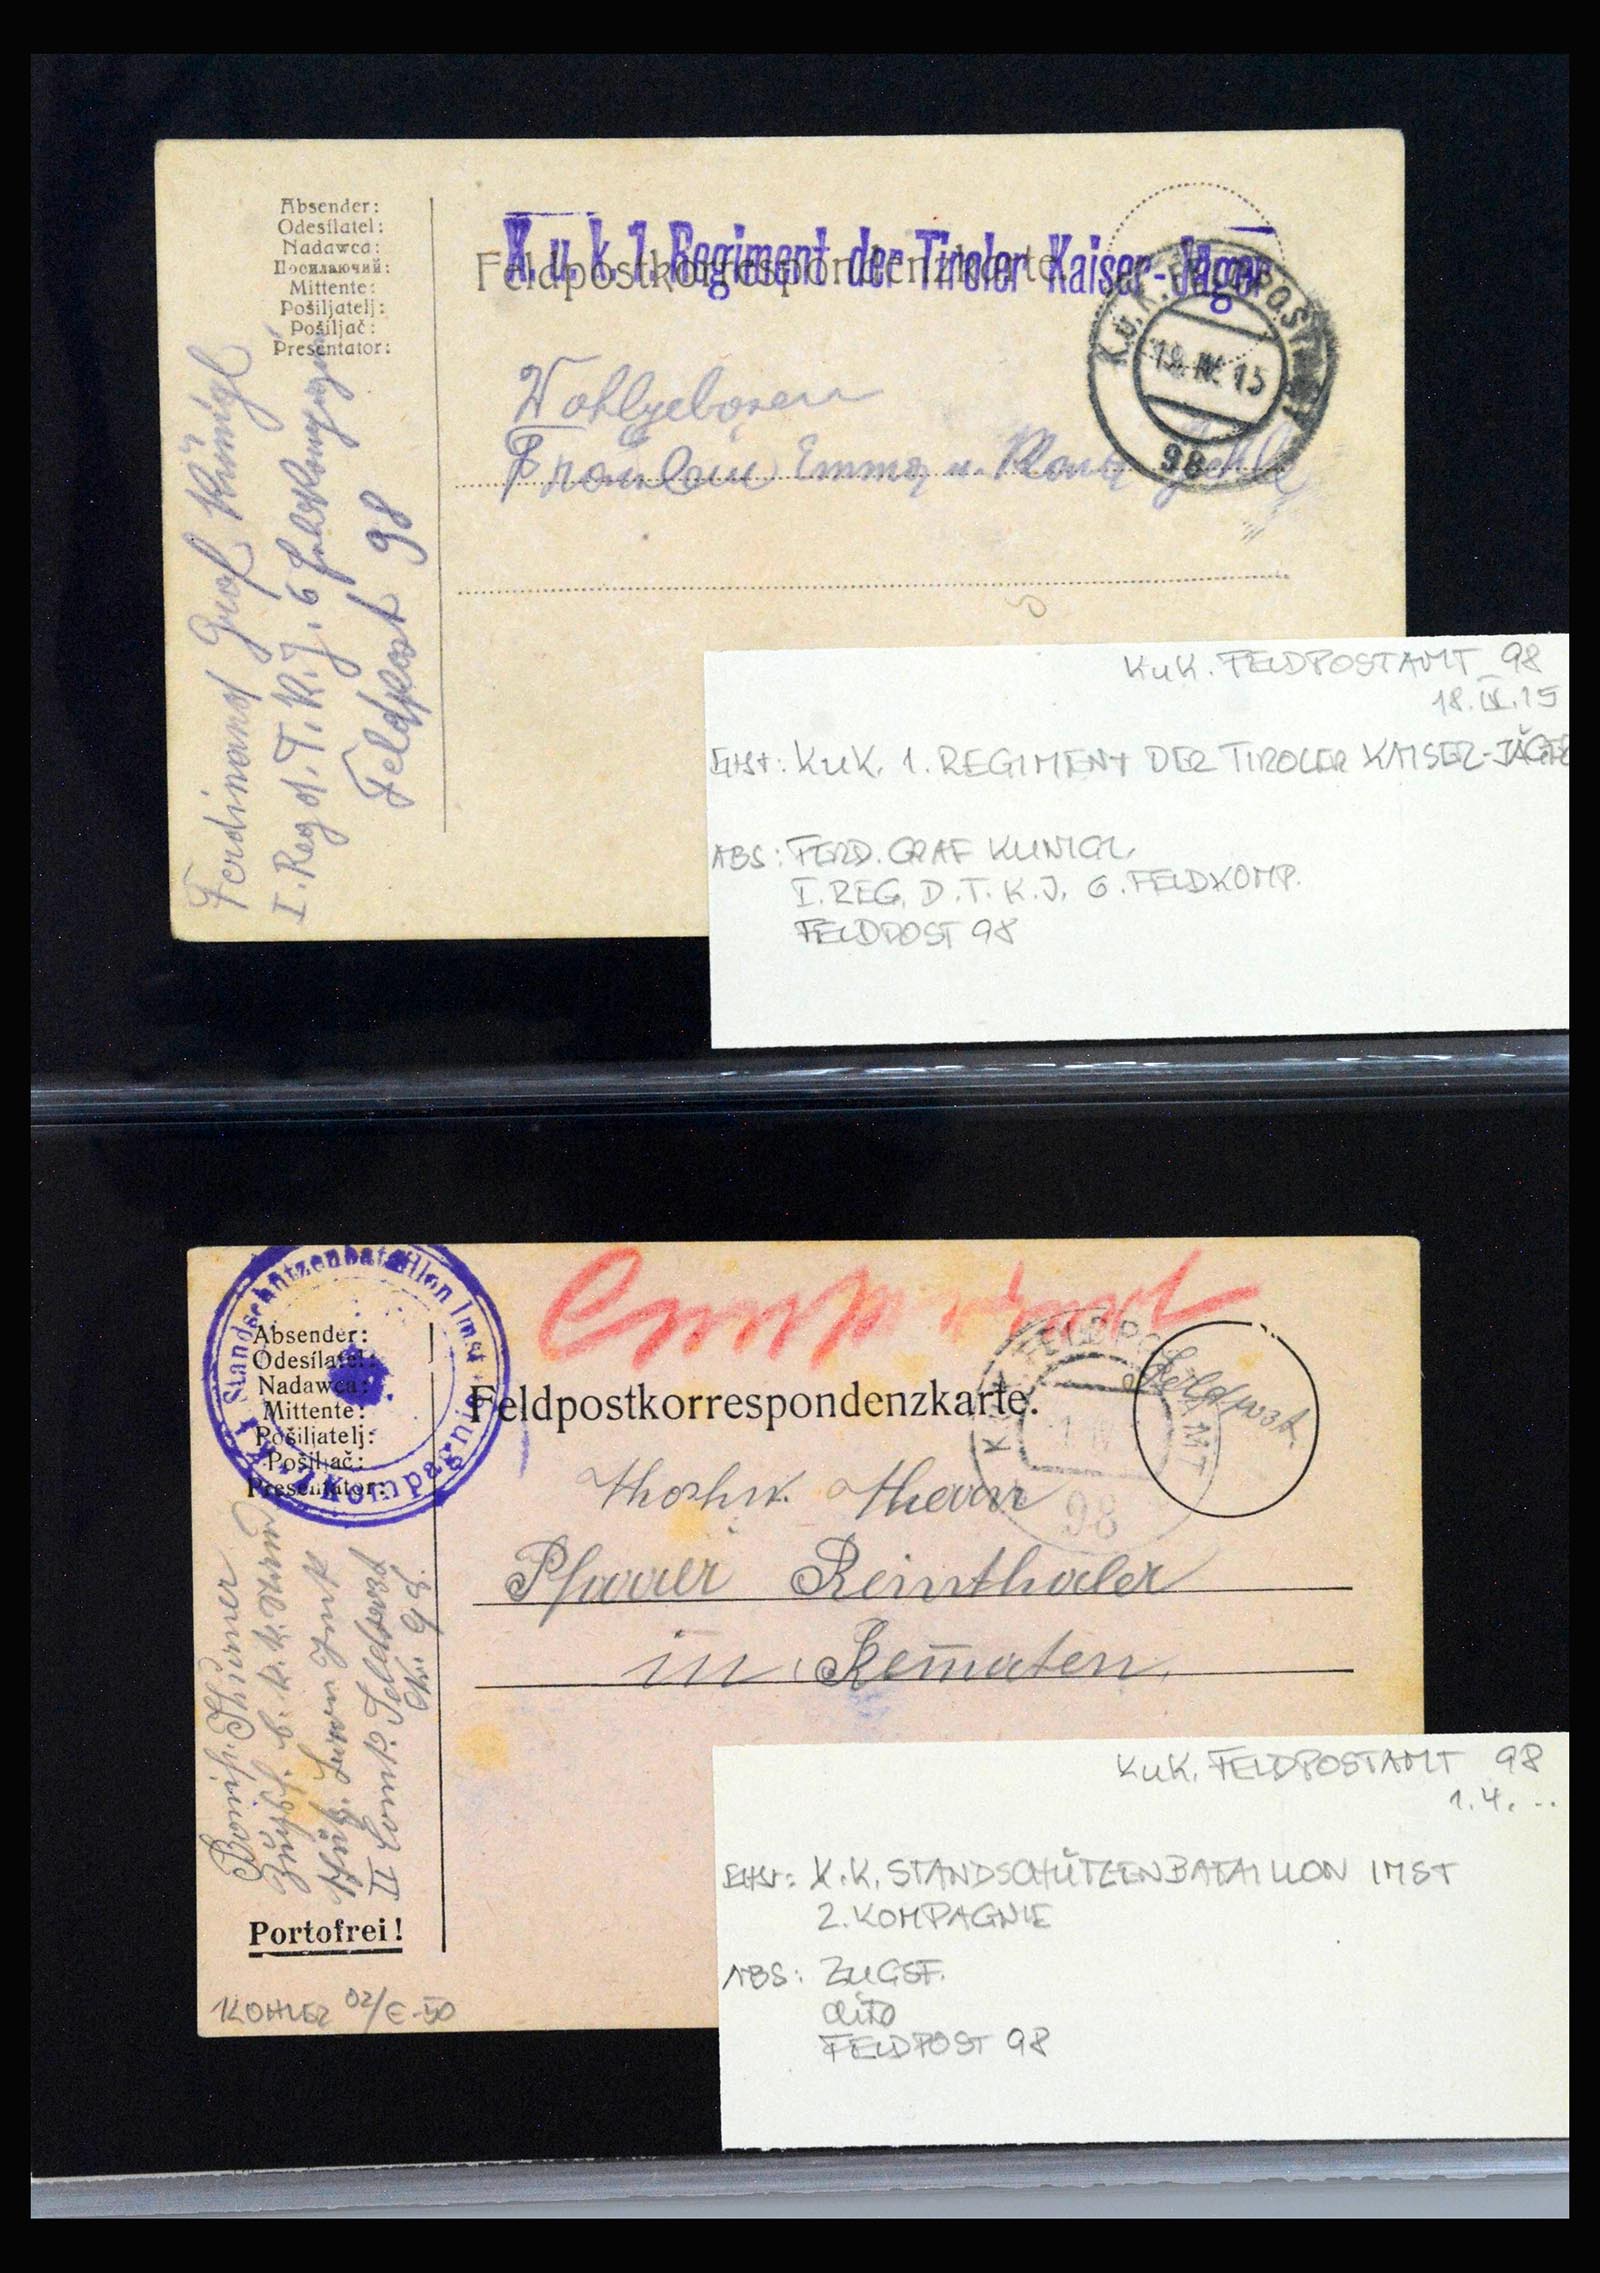 Absender:
Odesílatel:
Nadawca:
Посилаючий:
Mittente:
Pošiljatelj:
Pošiljač:
Presentator:
K. u. k. 1. Regiment der Tiroler Kaiser-Jäger
Feldpostkorrespondenzkarte
K.u.K. FELDPOSTAMT
18. IV. 15
98
Wohlgeboren
Fräulein Emma u.
Ferdinand Graf Künigl
I. Reg d. T. K. J. 6 Feldkompagnie
Feldpost 98
KuK. FELDPOSTAMT 98
18. IV. 15
EHST: KUK. 1. REGIMENT DER TIROLER KAISER-JÄGER
ABS: FERD. GRAF KUNIGL,
I. REG. D. T. K. J. 6. FELDKOMP.
FELDPOST 98
K.k. Standschützenbataillon Imst
2. Kompagnie
Absender:
Odesílatel:
Nadawca:
Mittente:
Pošiljatelj:
Pošiljač:
Presentator:
Feldpostkorrespondenzkarte.
K.u.K. FELDPOSTAMT
1 IV
98
Feldpost.
Hochw. Herrn
Pfarrer Reinthaler
in Rematen
II Komp. Feldpost
No. 98.
Portofrei!
KOHLER 02/€-50
KuK. FELDPOSTAMT 98
1. 4. ..
EHST: K.K. STANDSCHÜTZENBATAILLON IMST
2. KOMPAGNIE
ABS: ZUGSF.
dito
FELDPOST 98